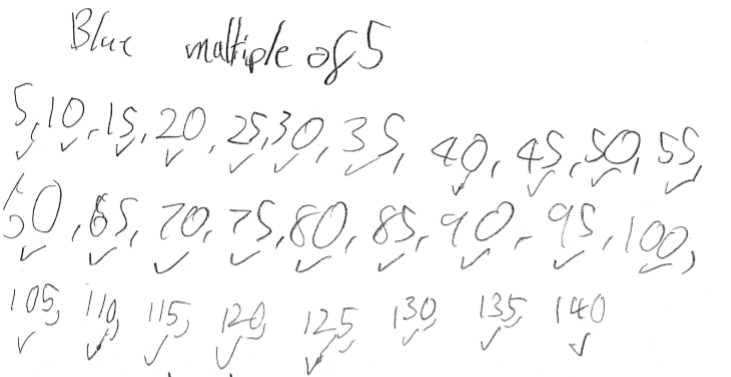 Blue multiple of 5
5, 10, 15, 20, 25, 30, 35, 40, 45, 50, 55,
60, 65, 70, 75, 80, 85, 90, 95, 100,
105, 110, 115, 120, 125, 130, 135, 140